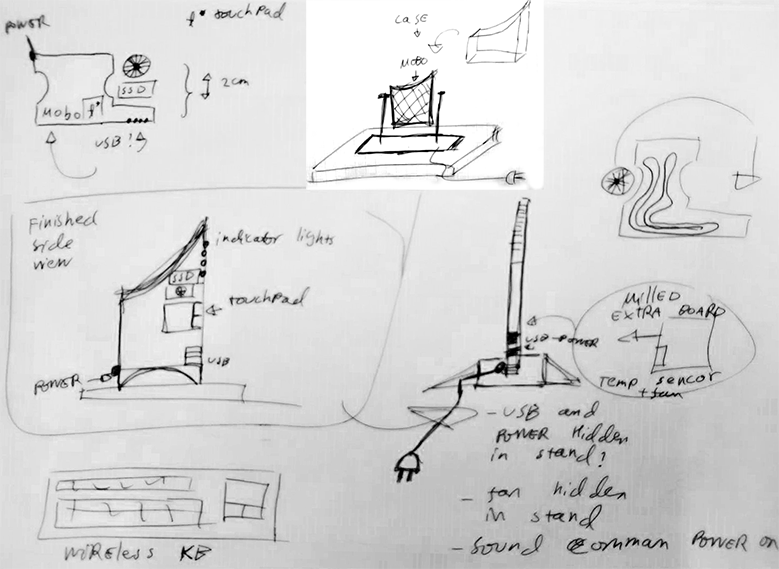 POWER
t° touchPad
SSD
2cm
Mobo t°
USB!?
CASE
MOBO
Finished
side
view
indicator lights
SSD
touchPad
USB
POWER
USB-POWER
MILLED
EXTRA BOARD
Temp sencor
+ fan
- USB and
POWER Hidden
in stand?
- fan hidden
in stand
- Sound comman POWER on
WIRELESS KB